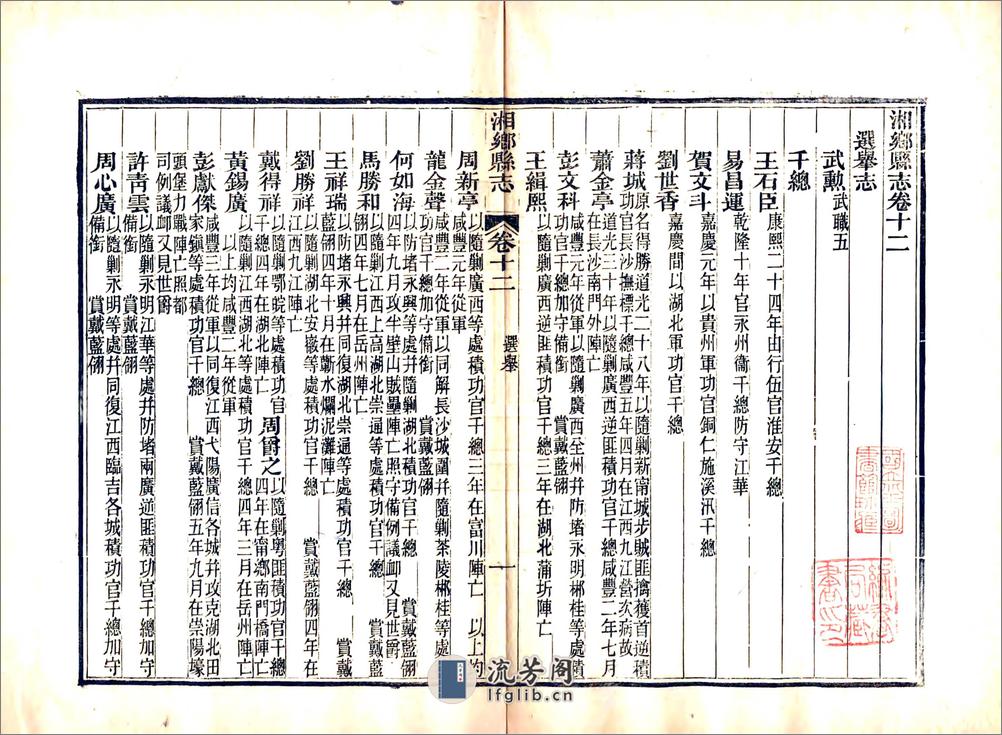 湘鄉縣志卷十二
選舉志
武勲武職五
千總
王石臣康熙二十四年由行伍官淮安千總
易昌運乾隆十年官永州衞千總防守江華
賀文斗嘉慶元年以貴州軍功官銅仁施溪汛千總
劉世香嘉慶間以湖北軍功官千總
蔣城原名得勝道光二十八年以隨剿新甯城步賊匪擒獲首逆積
功官長沙撫標千總咸豐五年四月在江西九江營次病故
蕭金亭道光三十年以隨剿廣西逆匪積功官千總咸豐二年七月
在長沙南門外陣亡
彭文科咸豐元年從軍以隨剿廣西全州幷防堵永明郴桂等處積
功官千總加守備銜 賞戴藍翎
王緝熙以隨剿廣西逆匪積功官千總三年在湖北蒲圻陣亡
湘鄉縣志
卷十二
選舉
一
周新亭以隨剿廣西等處積功官千總三年在富川陣亡 以上均
咸豐元年從軍
龍金聲咸豐二年從軍以同解長沙城圍幷隨剿茶陵郴桂等處積
功官千總加守備銜 賞戴藍翎
何如海以防堵永興等處幷隨剿湖北積功官千總 賞戴藍翎
四年九月攻半壁山賊壘陣亡照守備例議卹又見世爵
馬勝和以隨剿江西上高湖北崇通等處積功官千總 賞戴藍
翎四年七月在岳州陣亡
王祥瑞以防堵永興幷同復湖北崇通等處積功官千總 賞戴
藍翎四年十月在蘄水爛泥灘陣亡
劉勝祥以隨剿湖北安徽等處積功官千總 賞戴藍翎四年在
江西九江陣亡
戴得祥以隨剿鄂皖等處積功官
千總四年在湖北陣亡
周爵之以隨剿粵匪積功官千總
四年在甯鄉南門橋陣亡
黃錫廣以隨剿江西湖北等處積功官千總四年三月在岳州陣亡
以上均咸豐二年從軍
彭獻傑咸豐三年從軍以同復江西弋陽廣信各城幷攻克湖北田
家鎭等處積功官千總 賞戴藍翎五年九月在崇陽壕
頭堡力戰陣亡照都
司例議卹又見世爵
許靑雲以隨剿永明江華等處幷防堵兩廣逆匪積功官千總加守
備銜 賞戴藍翎
周心廣以隨剿永明等處幷同復江西臨吉各城積功官千總加守
備銜 賞戴藍翎
流芳阁
lfglib.cn